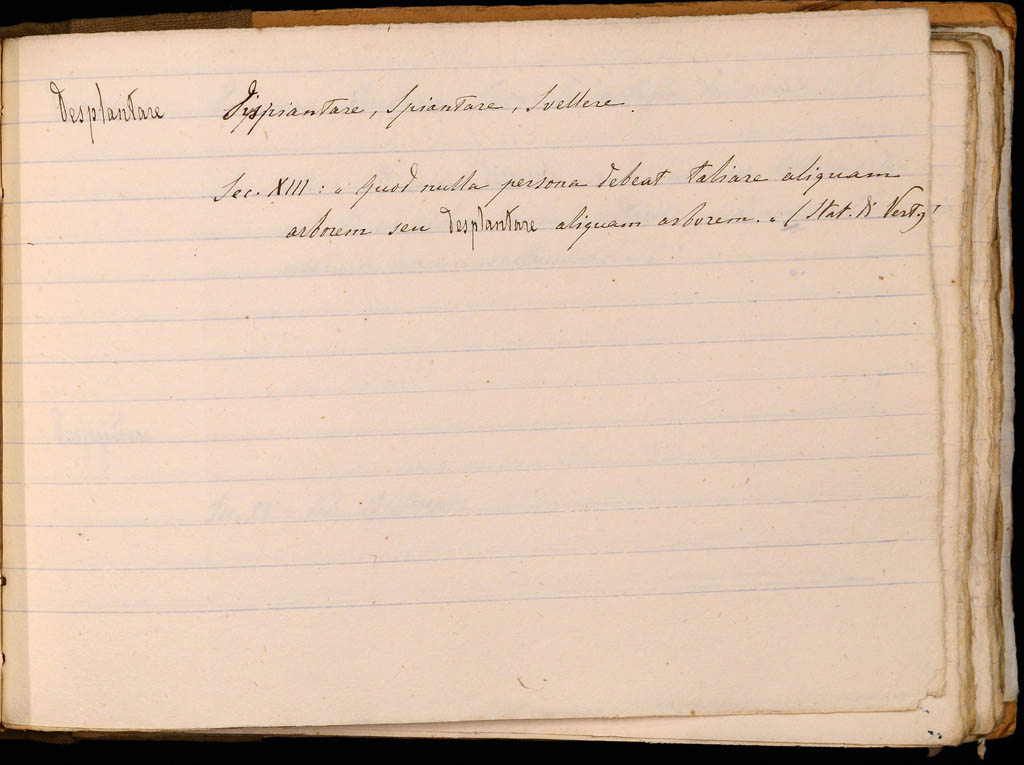 Desplantare Dispiantare, Spiantare, Svellere.
Sec. XIII: « Quod nulla persona debeat taliare aliquam
arborem seu desplantare aliquam arborem. » (Stat. di Vert.)